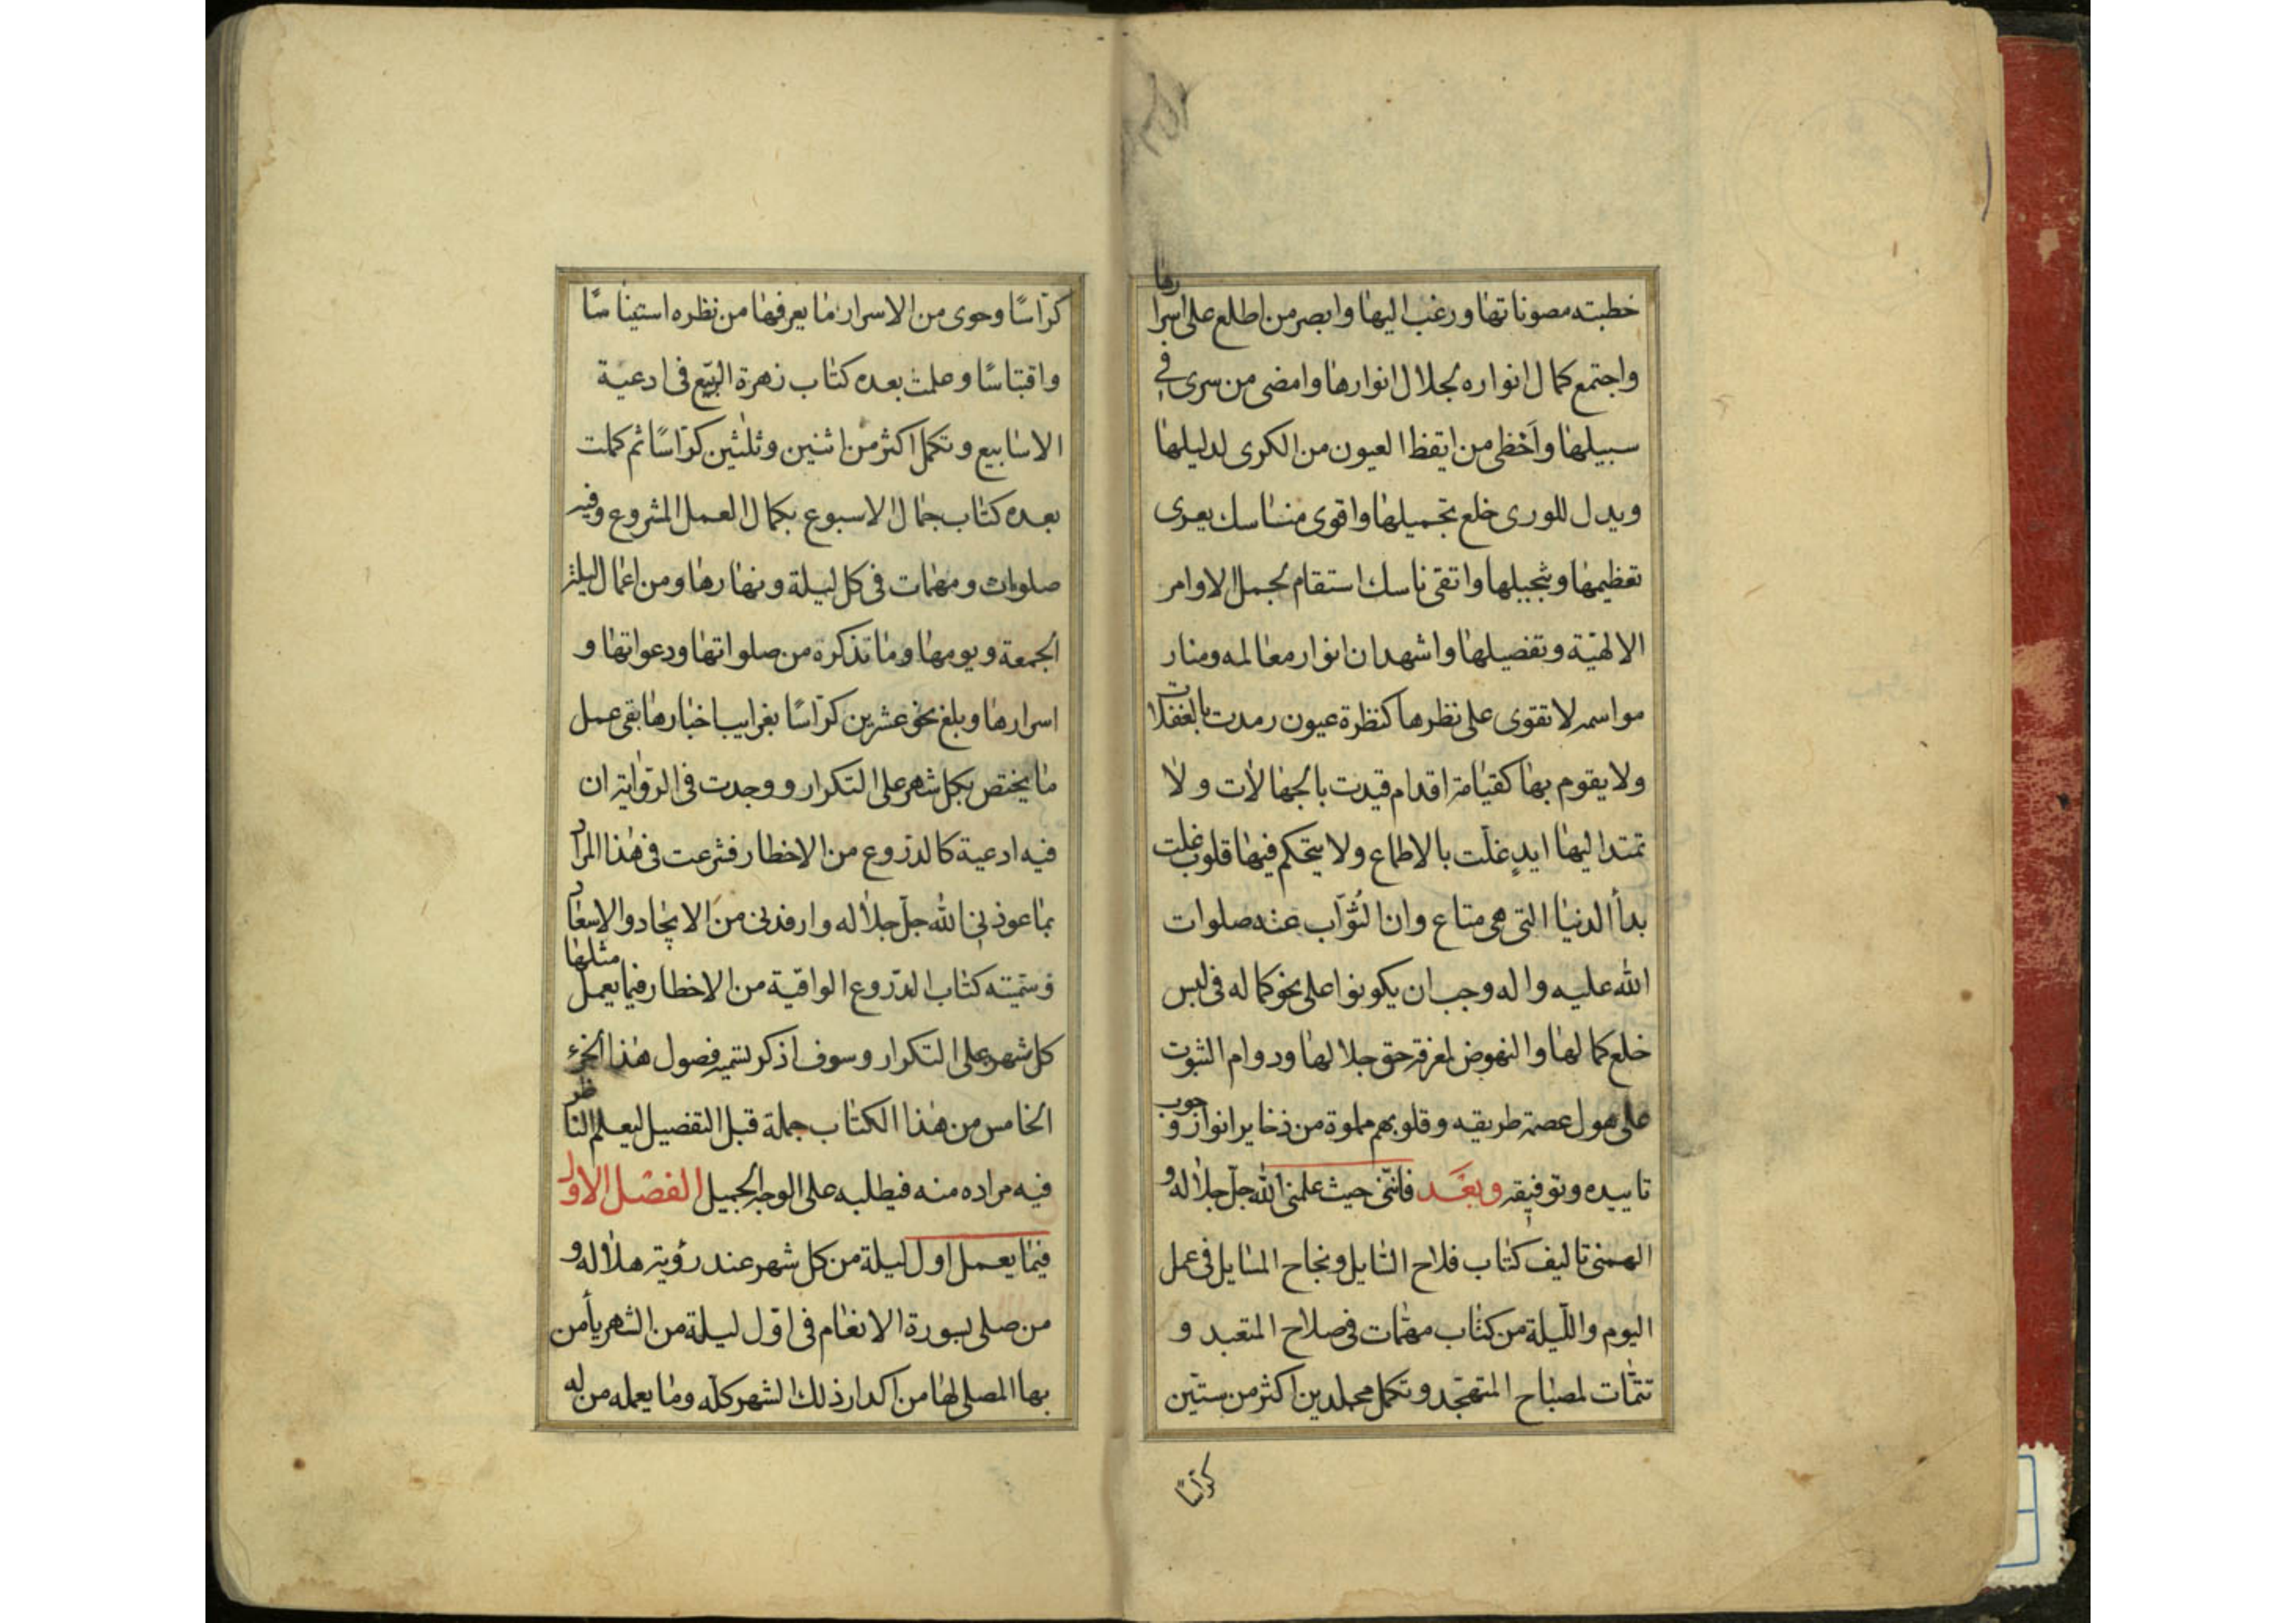 خطبته مصوناتها ورغب اليها وابصر من اطلع على اسرارها
واجتمع كمال انواره بجلال انوارها وامضى من سرى في
سبيلها واحظى من ايقظ العيون من الكرى لدليلها
ويدل للورى خلع تجميلها واقوى مناسك بعرى
تعظيمها وتبجيلها واتقى ناسك استقام بجمل الاوامر
الالهيّة وتفصيلها واشهد ان انوار معالمه ومنار
مواسمه لا تقوى على نظرها كنظرة عيون رمدت بالغفلات
ولا يقوم بها كقيامه اقدام قيدت بالجهالات ولا
تمتد اليها ايدٍ غلّت بالاطماع ولا يتحكم فيها قلوب غلت
بدأ الدنيا التى هى متاع وان النُوّاب عنه صلوات
الله عليه واله وجب ان يكونوا على نحو كماله فى لبس
خلع كمالها والنهوض لمعرفة حق جلالها ودوام الثبوت
على هول عصمة طريقه وقلوبهم مملوة من ذخاير انوار وجوب
تاييده وتوفيقه وبعَد فانّنى حيث علمنى الله جلّ جلاله و
الهمنى تاليف كتاب فلاح السايل ونجاح المسايل فى عمل
اليوم والليلة من كتاب مهمّات فى صلاح المتعبد و
تتمّات لمصباح المتهجّد وتكمل مجلدين اكثر من ستّين
كرّاسًا
كرّاسًا وحوى من الاسرار ما يعرفها من نظره استيناسًا
واقتباسًا وعملت بعده كتاب زهرة الربيع فى ادعية
الاسابيع وتكمل اكثر من اثنين وثلثين كرّاسًا ثم كملت
بعده كتاب جمال الاسبوع بكمال العمل المشروع وفيه
صلوات ومهمات فى كل ليلة ونهارها ومن اعمال ليلة
الجمعة ويومها وما تذكره من صلواتها ودعواتها و
اسرارها وبلغ نحو عشرين كرّاسًا بغرايب اخبارها بقى عمل
ما يختص بكل شهر على التكرار ووجدت فى الرّواية ان
فيه ادعية كالدّروع من الاخطار فشرعت فى هذا المراد
بما عوذنى الله جلّ جلاله وارفدنى من الايجاد والاسعاد
وسمّيته كتاب الدّروع الواقية من الاخطار فيما يعمل مثلها
كل شهر على التكرار وسوف اذكر تسمية فصول هذا الجزء
الخامس من هذا الكتاب جملة قبل التفصيل ليعلم الناظر
فيه مراده منه فيطلبه على الوجه الجميل الفصل الاول
فيما يعمل اول ليلة من كل شهر عند رؤية هلاله و
من صلى بسورة الانعام فى اوّل ليلة من الشهر يأمن
بها المصلى لها من اكدار ذلك الشهر كلّه وما يعمله من له